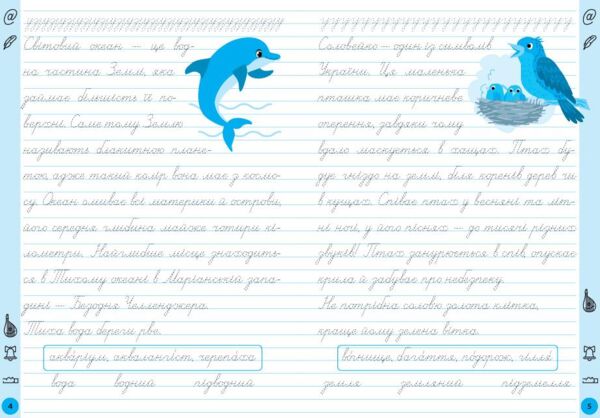 Світовий океан — це вод-
на частина Землі, яка
займає більшість її по-
верхні. Саме тому Землю
називають блакитною плане-
тою, адже такий колір вона має з космо-
су. Океан омиває всі материки й острови,
його середня глибина майже чотири кі-
лометри. Найглибше місце знаходить-
ся в Тихому океані в Маріанській запа-
дині — Безодня Челленджера.
Тиха вода береги рве.
аквáріум, аквалангíст, черепáха
вода водний підводний
4
Соловейко – один із символів
України. Ця маленька
пташка має коричневе
оперення, завдяки чому
вдало маскується в хащах. Птах бу-
дує гніздо на землі, біля коренів дерев чи
в кущах. Співає птах у весняні та літ-
ні ночі, у його піснях — до тисячі різних
звуків! Птах занурюється в спів, опускає
крила й забуває про небезпеку.
Не потрібна солов'ю золота клітка,
краще йому зелена вітка.
вóгнище, багáття, пóдорож, гілля́
земля земляний підземелля
5